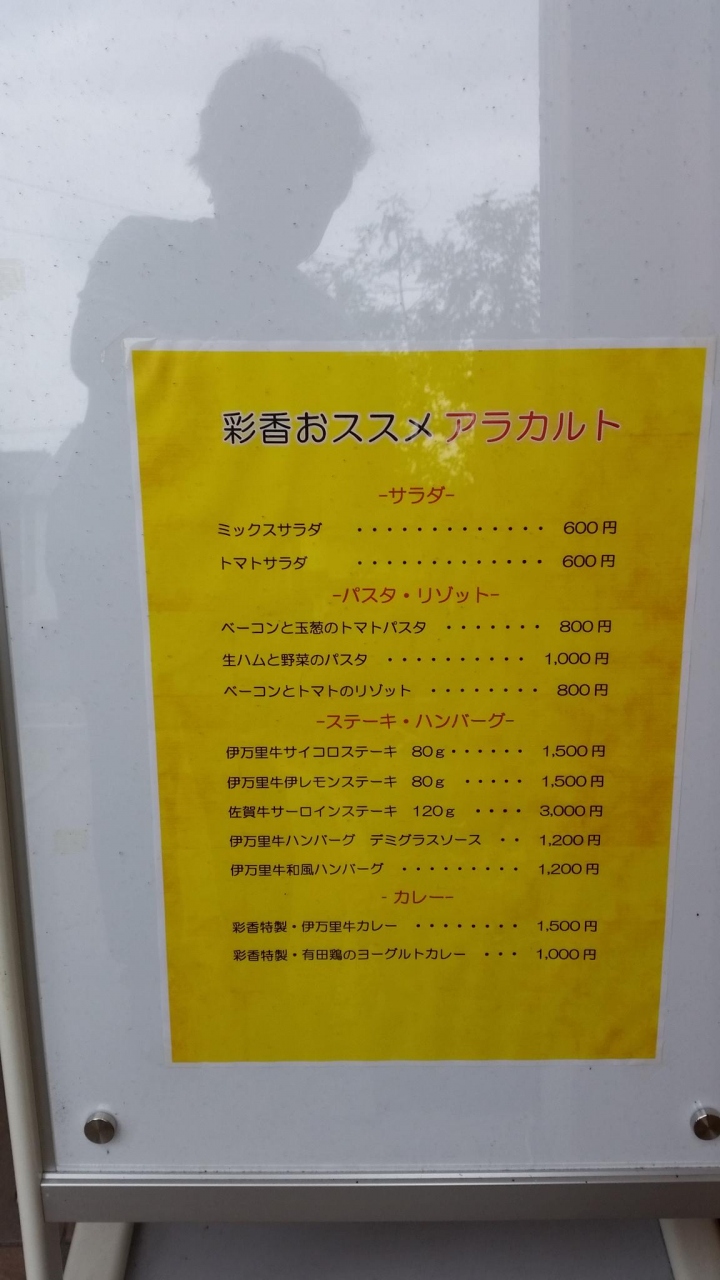 彩香おススメアラカルト
-サラダ-
ミックスサラダ ・・・・・・・・・・・・・ 600円
トマトサラダ ・・・・・・・・・・・・・ 600円
-パスタ・リゾット-
ベーコンと玉葱のトマトパスタ ・・・・・・・ 800円
生ハムと野菜のパスタ ・・・・・・・・・・ 1,000円
ベーコンとトマトのリゾット ・・・・・・・・ 800円
-ステーキ・ハンバーグ-
伊万里牛サイコロステーキ 80g・・・・・・ 1,500円
伊万里牛伊レモンステーキ 80g ・・・・・ 1,500円
佐賀牛サーロインステーキ 120g ・・・・ 3,000円
伊万里牛ハンバーグ デミグラスソース ・・ 1,200円
伊万里牛和風ハンバーグ ・・・・・・・・・ 1,200円
- カレー-
彩香特製・伊万里牛カレー ・・・・・・・・ 1,500円
彩香特製・有田鶏のヨーグルトカレー ・・・ 1,000円